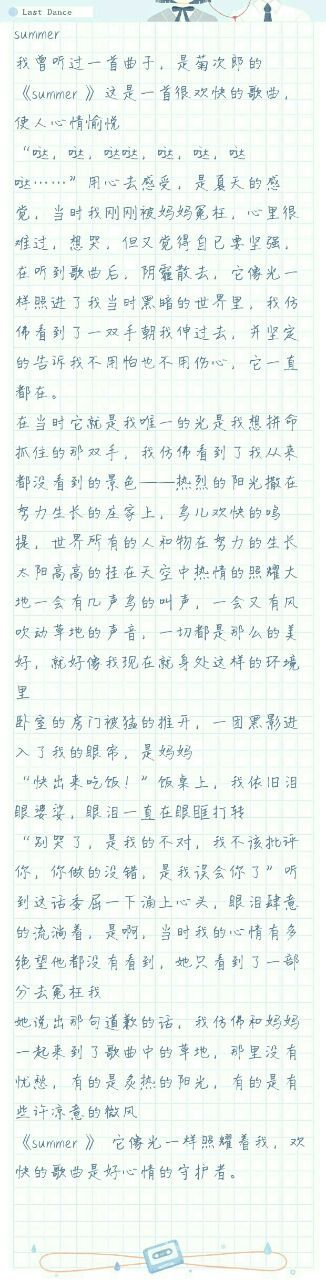 Last Dance
summer
我曾听过一首曲子，是菊次郎的
《summer 》这是一首很欢快的歌曲，
使人心情愉悦
“哒，哒，哒哒，哒，哒，哒
哒……”用心去感受，是夏天的感
觉，当时我刚刚被妈妈冤枉，心里很
难过，想哭，但又觉得自己要坚强，
在听到歌曲后，阴霾散去，它像光一
样照进了我当时黑暗的世界里，我仿
佛看到了一双手朝我伸过去，并坚定
的告诉我不用怕也不用伤心，它一直
都在。
在当时它就是我唯一的光是我想拼命
抓住的那双手，我仿佛看到了我从来
都没看到的景色——热烈的阳光撒在
努力生长的庄家上，鸟儿欢快的鸣
提，世界所有的人和物在努力的生长
太阳高高的挂在天空中热情的照耀大
地一会有几声鸟的叫声，一会又有风
吹动草地的声音，一切都是那么的美
好，就好像我现在就身处这样的环境
里
卧室的房门被猛的推开，一团黑影进
入了我的眼帘，是妈妈
“快出来吃饭！”饭桌上，我依旧泪
眼婆娑，眼泪一直在眼眶打转
“别哭了，是我的不对，我不该批评
你，你做的没错，是我误会你了”听
到这话委屈一下涌上心头，眼泪肆意
的流淌着，是啊，当时我的心情有多
绝望他都没有看到，她只看到了一部
分去冤枉我
她说出那句道歉的话，我仿佛和妈妈
一起来到了歌曲中的草地，那里没有
忧愁，有的是炙热的阳光，有的是有
些许凉意的微风
《summer 》 它像光一样照耀着我，欢
快的歌曲是好心情的守护者。